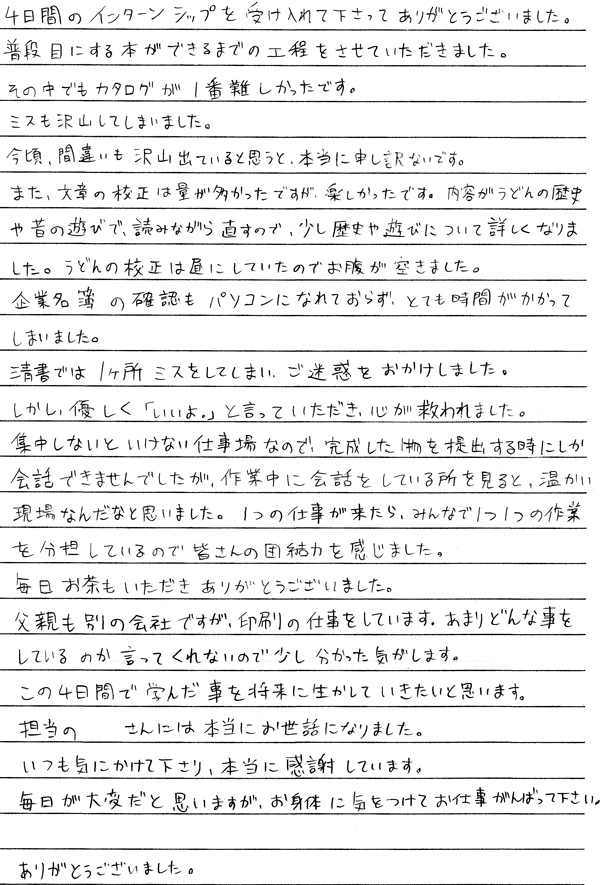 4日間のインターンシップを受け入れて下さってありがとうございました。
普段目にする本ができるまでの工程をさせていただきました。
その中でもカタログが1番難しかったです。
ミスも沢山してしまいました。
今頃、間違いも沢山出ていると思うと、本当に申し訳ないです。
また、文章の校正は量が多かったですが、楽しかったです。内容がうどんの歴史
や昔の遊びで、読みながら直すので、少し歴史や遊びについて詳しくなりま
した。うどんの校正は昼にしていたのでお腹が空きました。
企業名簿の確認もパソコンになれておらず、とても時間がかかって
しまいました。
清書では1ヶ所ミスをしてしまい、ご迷惑をおかけしました。
しかし、優しく「いいよ。」と言っていただき、心が救われました。
集中しないといけない仕事場なので、完成した物を提出する時にしか
会話できませんでしたが、作業中に会話をしている所を見ると、温かい
現場なんだなと思いました。1つの仕事が来たら、みんなで1つ1つの作業
を分担しているので皆さんの団結力を感じました。
毎日お茶もいただきありがとうございました。
父親も別の会社ですが、印刷の仕事をしています。あまりどんな事を
しているのか言ってくれないので少し分かった気がします。
この4日間で学んだ事を将来に生かしていきたいと思います。
担当の　　さんには本当にお世話になりました。
いつも気にかけて下さり、本当に感謝しています。
毎日が大変だと思いますが、お身体に気をつけてお仕事がんばって下さい。
ありがとうございました。